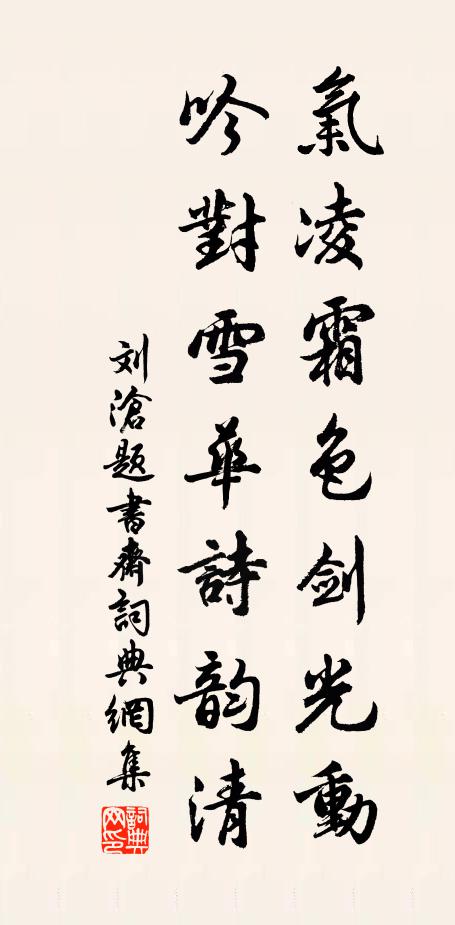 氣凌霜色剑光動
吟對雪華詩韵清
刘滄題書齊詞典網集
詞典网印